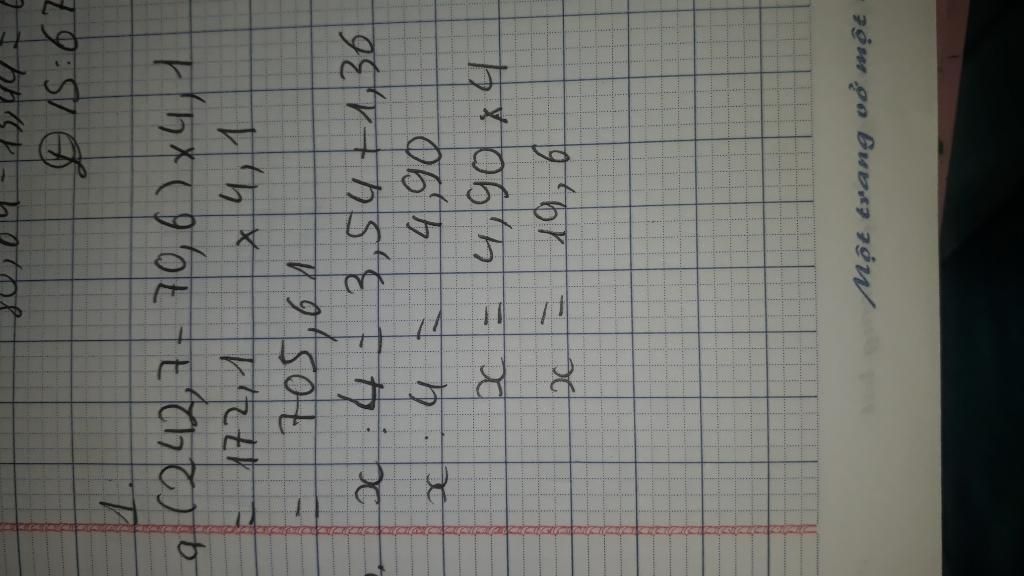 80,04 - 13,44 =
Đ/S: 67
1.
a (242,7 - 70,6) x 4,1
= 172,1 x 4,1
= 705,61
x : 4 = 3,54 + 1,36
x : 4 = 4,90
x = 4,90 x 4
x = 19,6
Một trang vở một